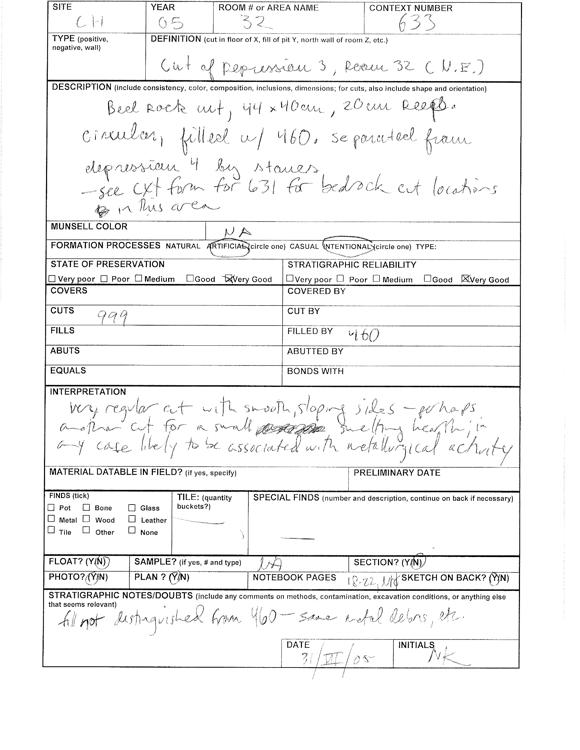 SITE YEAR ROOM # or AREA NAME CONTEXT NUMBER
CH 05 32 633
TYPE (positive, negative, wall) DEFINITION (cut in floor of X, fill of pit Y, north wall of room Z, etc.)
Cut of Depression 3, Room 32 (N.E.)
DESCRIPTION (include consistency, color, composition, inclusions, dimensions; for cuts, also include shape and orientation)
Bed Rock cut, 44 x 40cm, 20cm deep.
circular, filled w/ 460. separated from
depression 4 by stones
- see CXT form for 631 for bedrock cut locations
in this area
MUNSELL COLOR NA
FORMATION PROCESSES NATURAL ARTIFICIAL (circle one) CASUAL INTENTIONAL (circle one) TYPE:
STATE OF PRESERVATION STRATIGRAPHIC RELIABILITY
Very poor Poor Medium Good Very Good Very poor Poor Medium Good Very Good
COVERS COVERED BY
CUTS 999 CUT BY
FILLS FILLED BY 460
ABUTS ABUTTED BY
EQUALS BONDS WITH
INTERPRETATION
very regular cut with smooth, sloping sides - perhaps
another cut for a small smelting hearth; in
any case likely to be associated with metallurgical activity
MATERIAL DATABLE IN FIELD? (if yes, specify) PRELIMINARY DATE
FINDS (tick) TILE: (quantity buckets?) SPECIAL FINDS (number and description, continue on back if necessary)
Pot Bone Glass
Metal Wood Leather
Tile Other None
FLOAT? (Y/N) SAMPLE? (if yes, # and type) NA SECTION? (Y/N)
PHOTO? (Y/N) PLAN ? (Y/N) NOTEBOOK PAGES 18-22, NK SKETCH ON BACK? (Y/N)
STRATIGRAPHIC NOTES/DOUBTS (include any comments on methods, contamination, excavation conditions, or anything else
that seems relevant)
fill not distinguished from 460 - same metal debris, etc.
DATE INITIALS
31/VII/05 NK